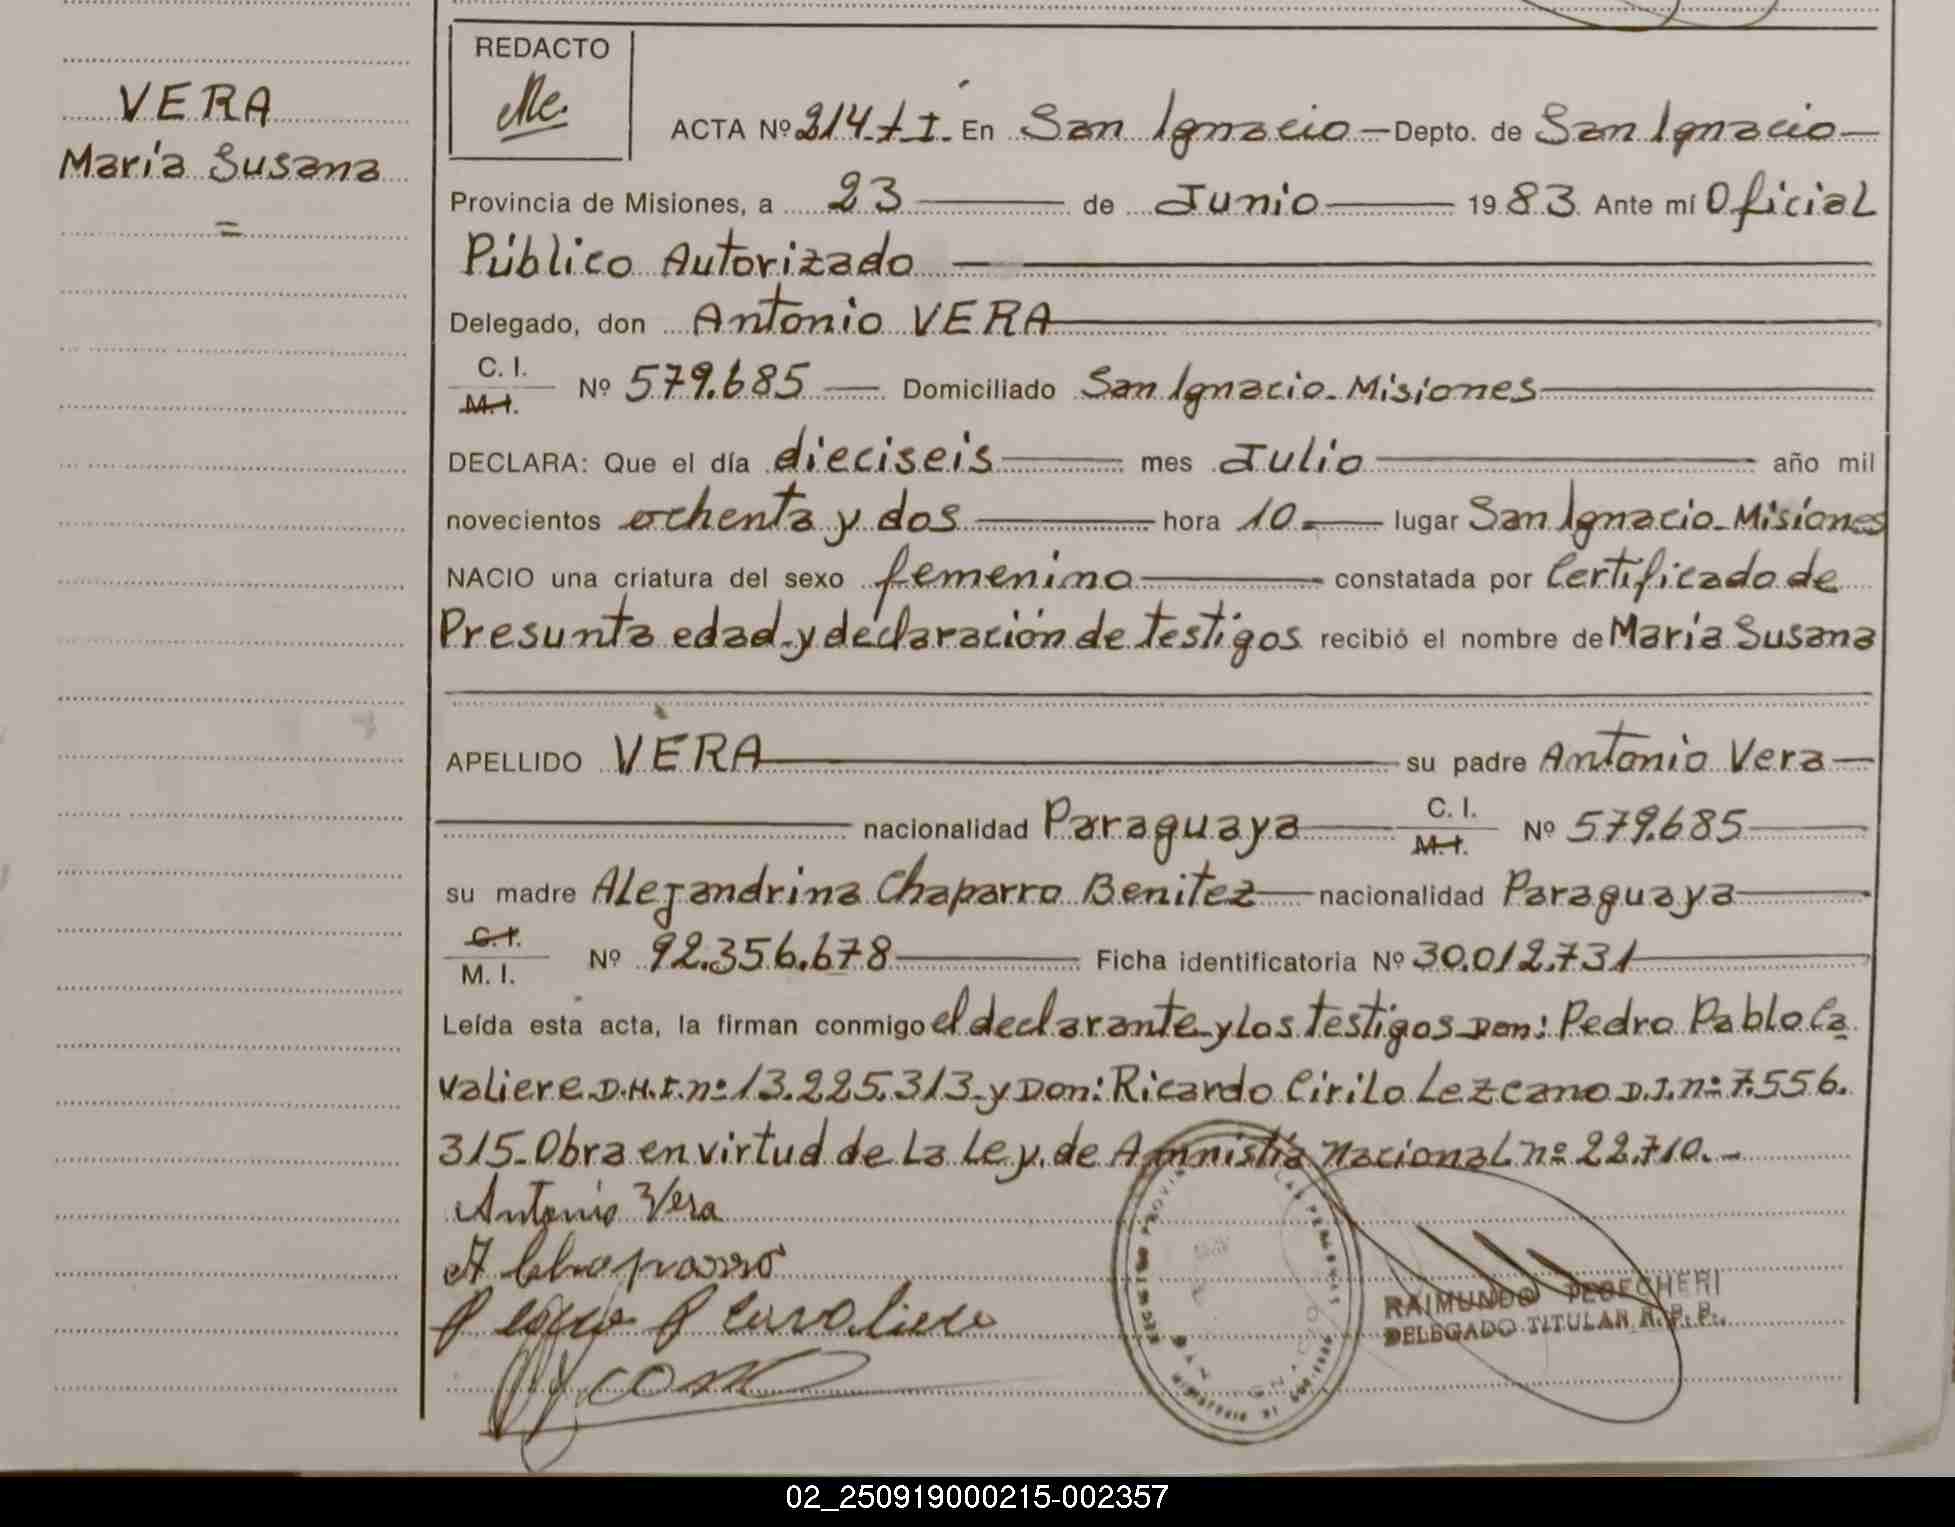 REDACTO
VERA
María Susana
=
ACTA Nº 214-TI. En San Ignacio - Depto. de San Ignacio
Provincia de Misiones, a 23 de Junio 1983. Ante mí Oficial
Público Autorizado
Delegado, don Antonio VERA
C. I. M. I. Nº 579.685 Domiciliado San Ignacio - Misiones
DECLARA: Que el día dieciseis mes Julio año mil
novecientos ochenta y dos hora 10 lugar San Ignacio - Misiones
NACIO una criatura del sexo femenino constatada por Certificado de
Presunta edad y declaración de testigos recibió el nombre de María Susana
APELLIDO VERA su padre Antonio Vera
nacionalidad Paraguaya C. I. M. I. Nº 579.685
su madre Alejandrina Chaparro Benitez nacionalidad Paraguaya
C. I. M. I. Nº 92.356.678 Ficha identificatoria Nº 30.012.731
Leída esta acta, la firman conmigo el declarante y los testigos Don: Pedro Pablo Ca
valiere D.N.I. nº 13.225.313 y Don: Ricardo Cirilo Lezcano D.I. nº 7.556.
315 - Obra en virtud de La Ley de Amnistía Nacional nº 22.710.-
Antonio Vera
A Chaparro
RAIMUNDO
DELEGADO TITULAR R. P. P.
02_250919000215-002357